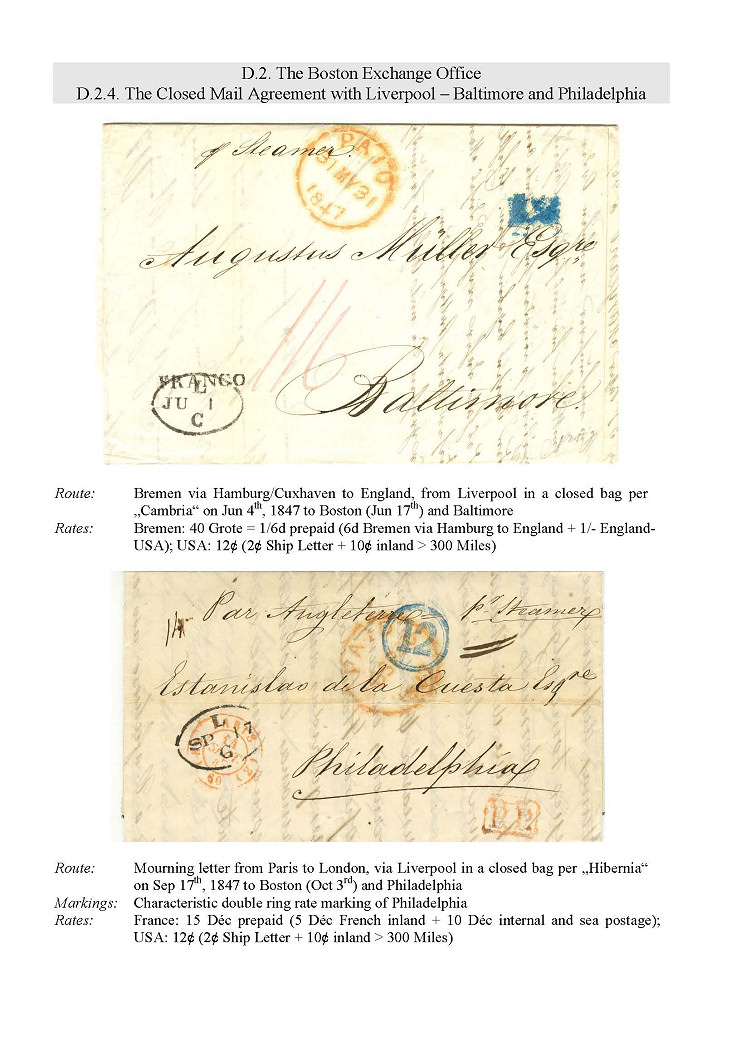 D.2. The Boston Exchange Office
D.2.4. The Closed Mail Agreement with Liverpool – Baltimore and Philadelphia
pr Steamer.
PAID
31 MY 31
1847
12
Augustus Müller Esqre
1/6
Baltimore.
FRANCO
L
JU 1
C
Route: Bremen via Hamburg/Cuxhaven to England, from Liverpool in a closed bag per
„Cambria“ on Jun 4th, 1847 to Boston (Jun 17th) and Baltimore
Rates: Bremen: 40 Grote = 1/6d prepaid (6d Bremen via Hamburg to England + 1/- England-
USA); USA: 12¢ (2¢ Ship Letter + 10¢ inland > 300 Miles)
Par Angleterre pr Steamer
12
PAID
Estanislao de la Cuesta Esqre
L
SP 17
G
(2)
60
Philadelphia
P.P.
Route: Mourning letter from Paris to London, via Liverpool in a closed bag per „Hibernia“
on Sep 17th, 1847 to Boston (Oct 3rd) and Philadelphia
Markings: Characteristic double ring rate marking of Philadelphia
Rates: France: 15 Déc prepaid (5 Déc French inland + 10 Déc internal and sea postage);
USA: 12¢ (2¢ Ship Letter + 10¢ inland > 300 Miles)